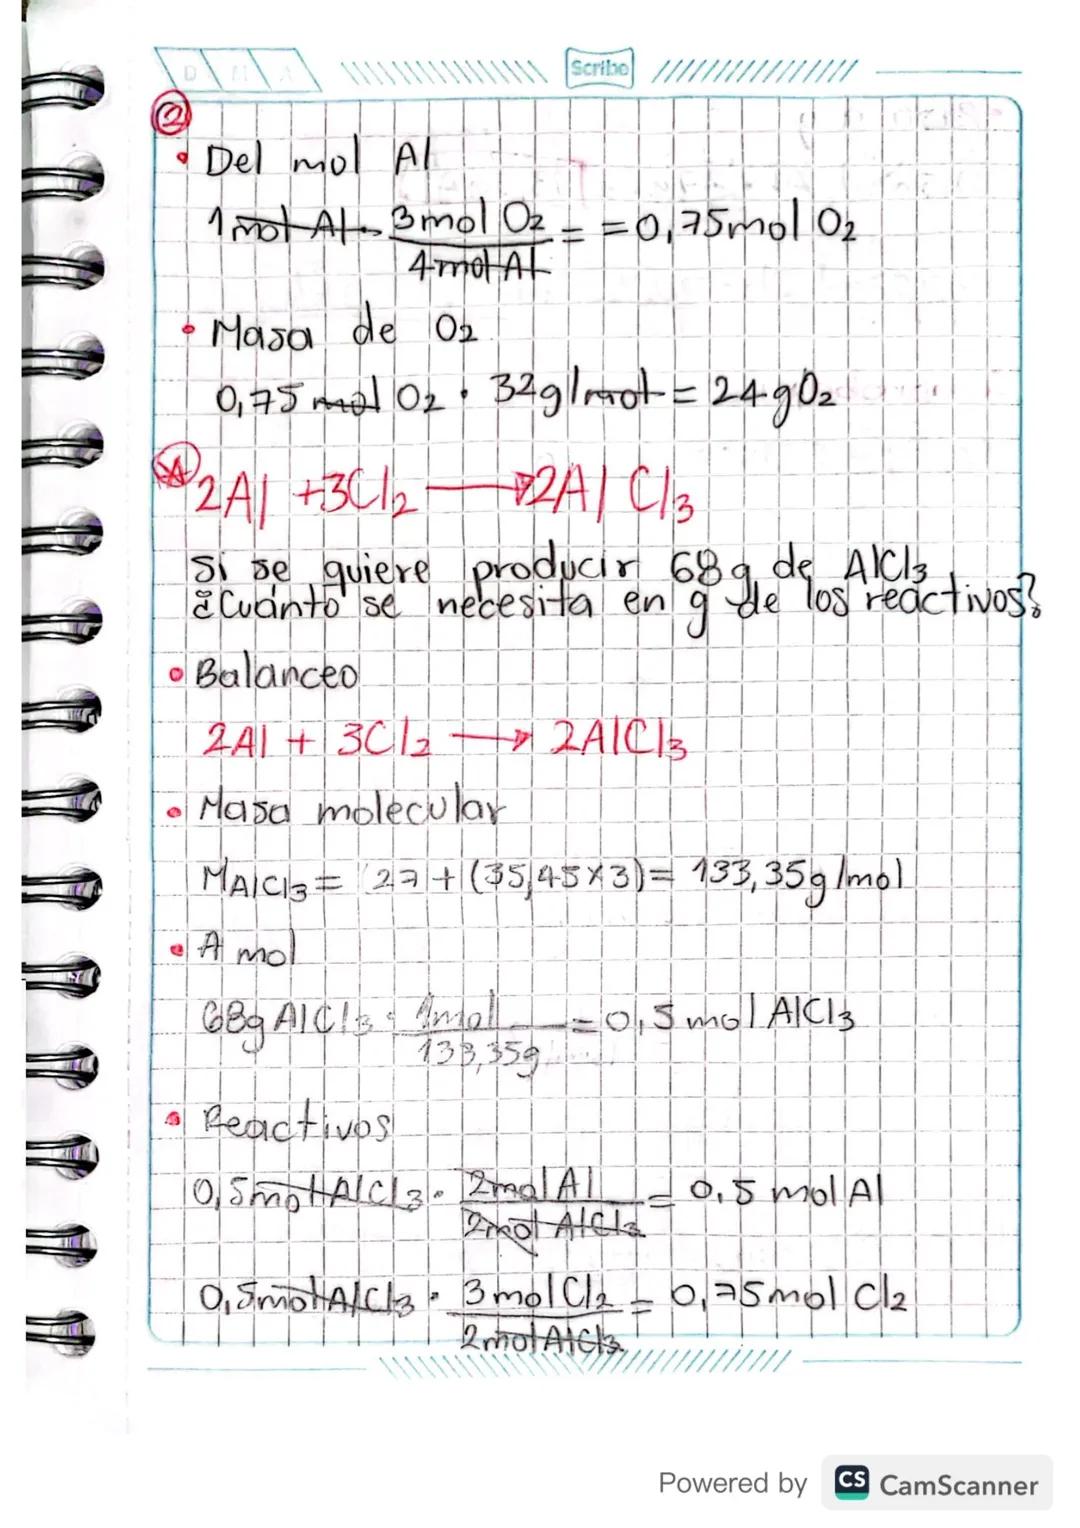 D M A
Scribe
2
• Del mol Al
1 mol Al · 3 mol O₂ = = 0,75 mol O₂
4 mol Al
• Masa de O₂
0,75 mol O₂ · 32g/mol = 24 gO₂
2Al + 3Cl₂ → 2AlCl₃
Si se quiere producir 68g de AlCl₃
¿Cuánto se necesita en g de los reactivos?
• Balanceo
2Al + 3Cl₂ → 2AlCl₃
• Masa molecular
MAlCl₃ = 27 + (35,45x3) = 133,35g/mol
• A mol
68g AlCl₃ · 1mol = 0,5 mol AlCl₃
133,35g
• Reactivos
0,5 mol AlCl₃ · 2mol Al = 0,5 mol Al
2mol AlCl₃
0,5 mol AlCl₃ · 3 mol Cl₂ = 0,75 mol Cl₂
2mol AlCl₃
Powered by CS CamScanner